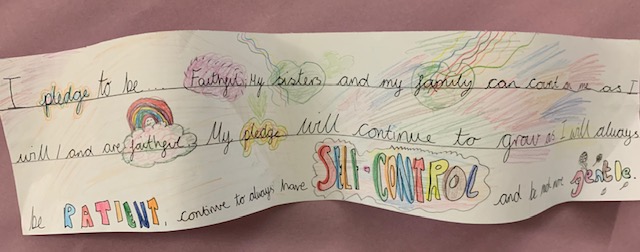 I pledge to be.... Faithful, My sisters and my family can count on me as I
will / and are faithful. My pledge will continue to grow as I will always
be PATIENT, continue to always have SELF-CONTROL and be gentle.